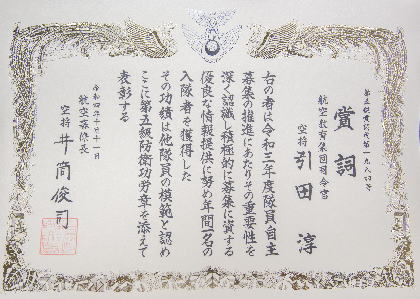 第五級賞詞第一九八四号
賞詞
航空教育集団司令官
空将 引田 淳
右の者は令和三年度隊員自主
募集の推進にあたりその重要性を
深く認識し積極的に募集に資する
優良な情報提供に努め年間一名の
入隊者を獲得した
その功績は他隊員の模範と認め
ここに第五級防衛功労章を添えて
表彰する
令和四年十月十一日
航空幕僚長
空将 井筒俊司